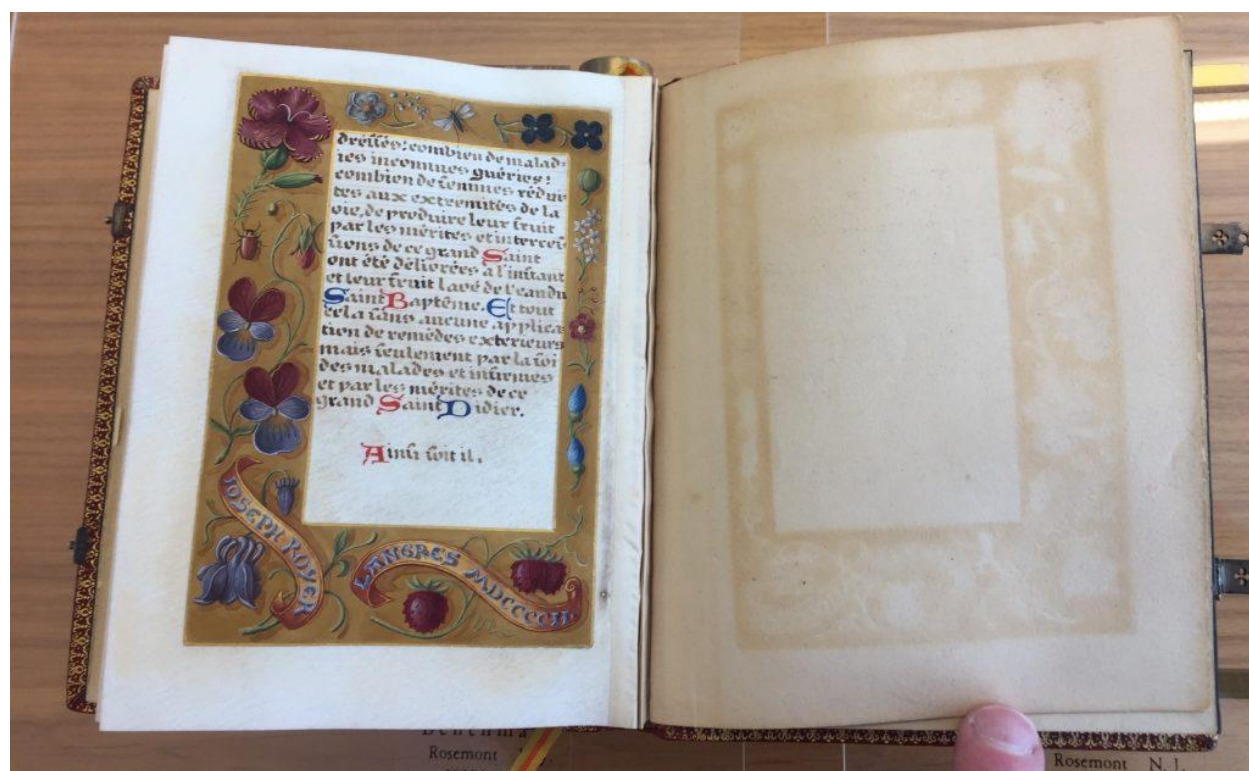 dresses: combien de malad-
ies inconnues guéries!
combien de femmes rédui
tes aux extremités de la
vie, de produire leur fruit
par les mérites et interces-
sions de ce grand Saint
ont été délivrées a l'instant
et leur fruit lavé de l'eau du
Saint Baptême. Et tout
cela sans aucune applica
tion de remèdes exterieurs
mais seulement par la foi
des malades et infirmes
et par les mérites de ce
grand Saint Didier.
Ainsi soit il.
JOSEPH ROYER
LANGRES MDCCCCII
Rosemont
Rosemont N. J.